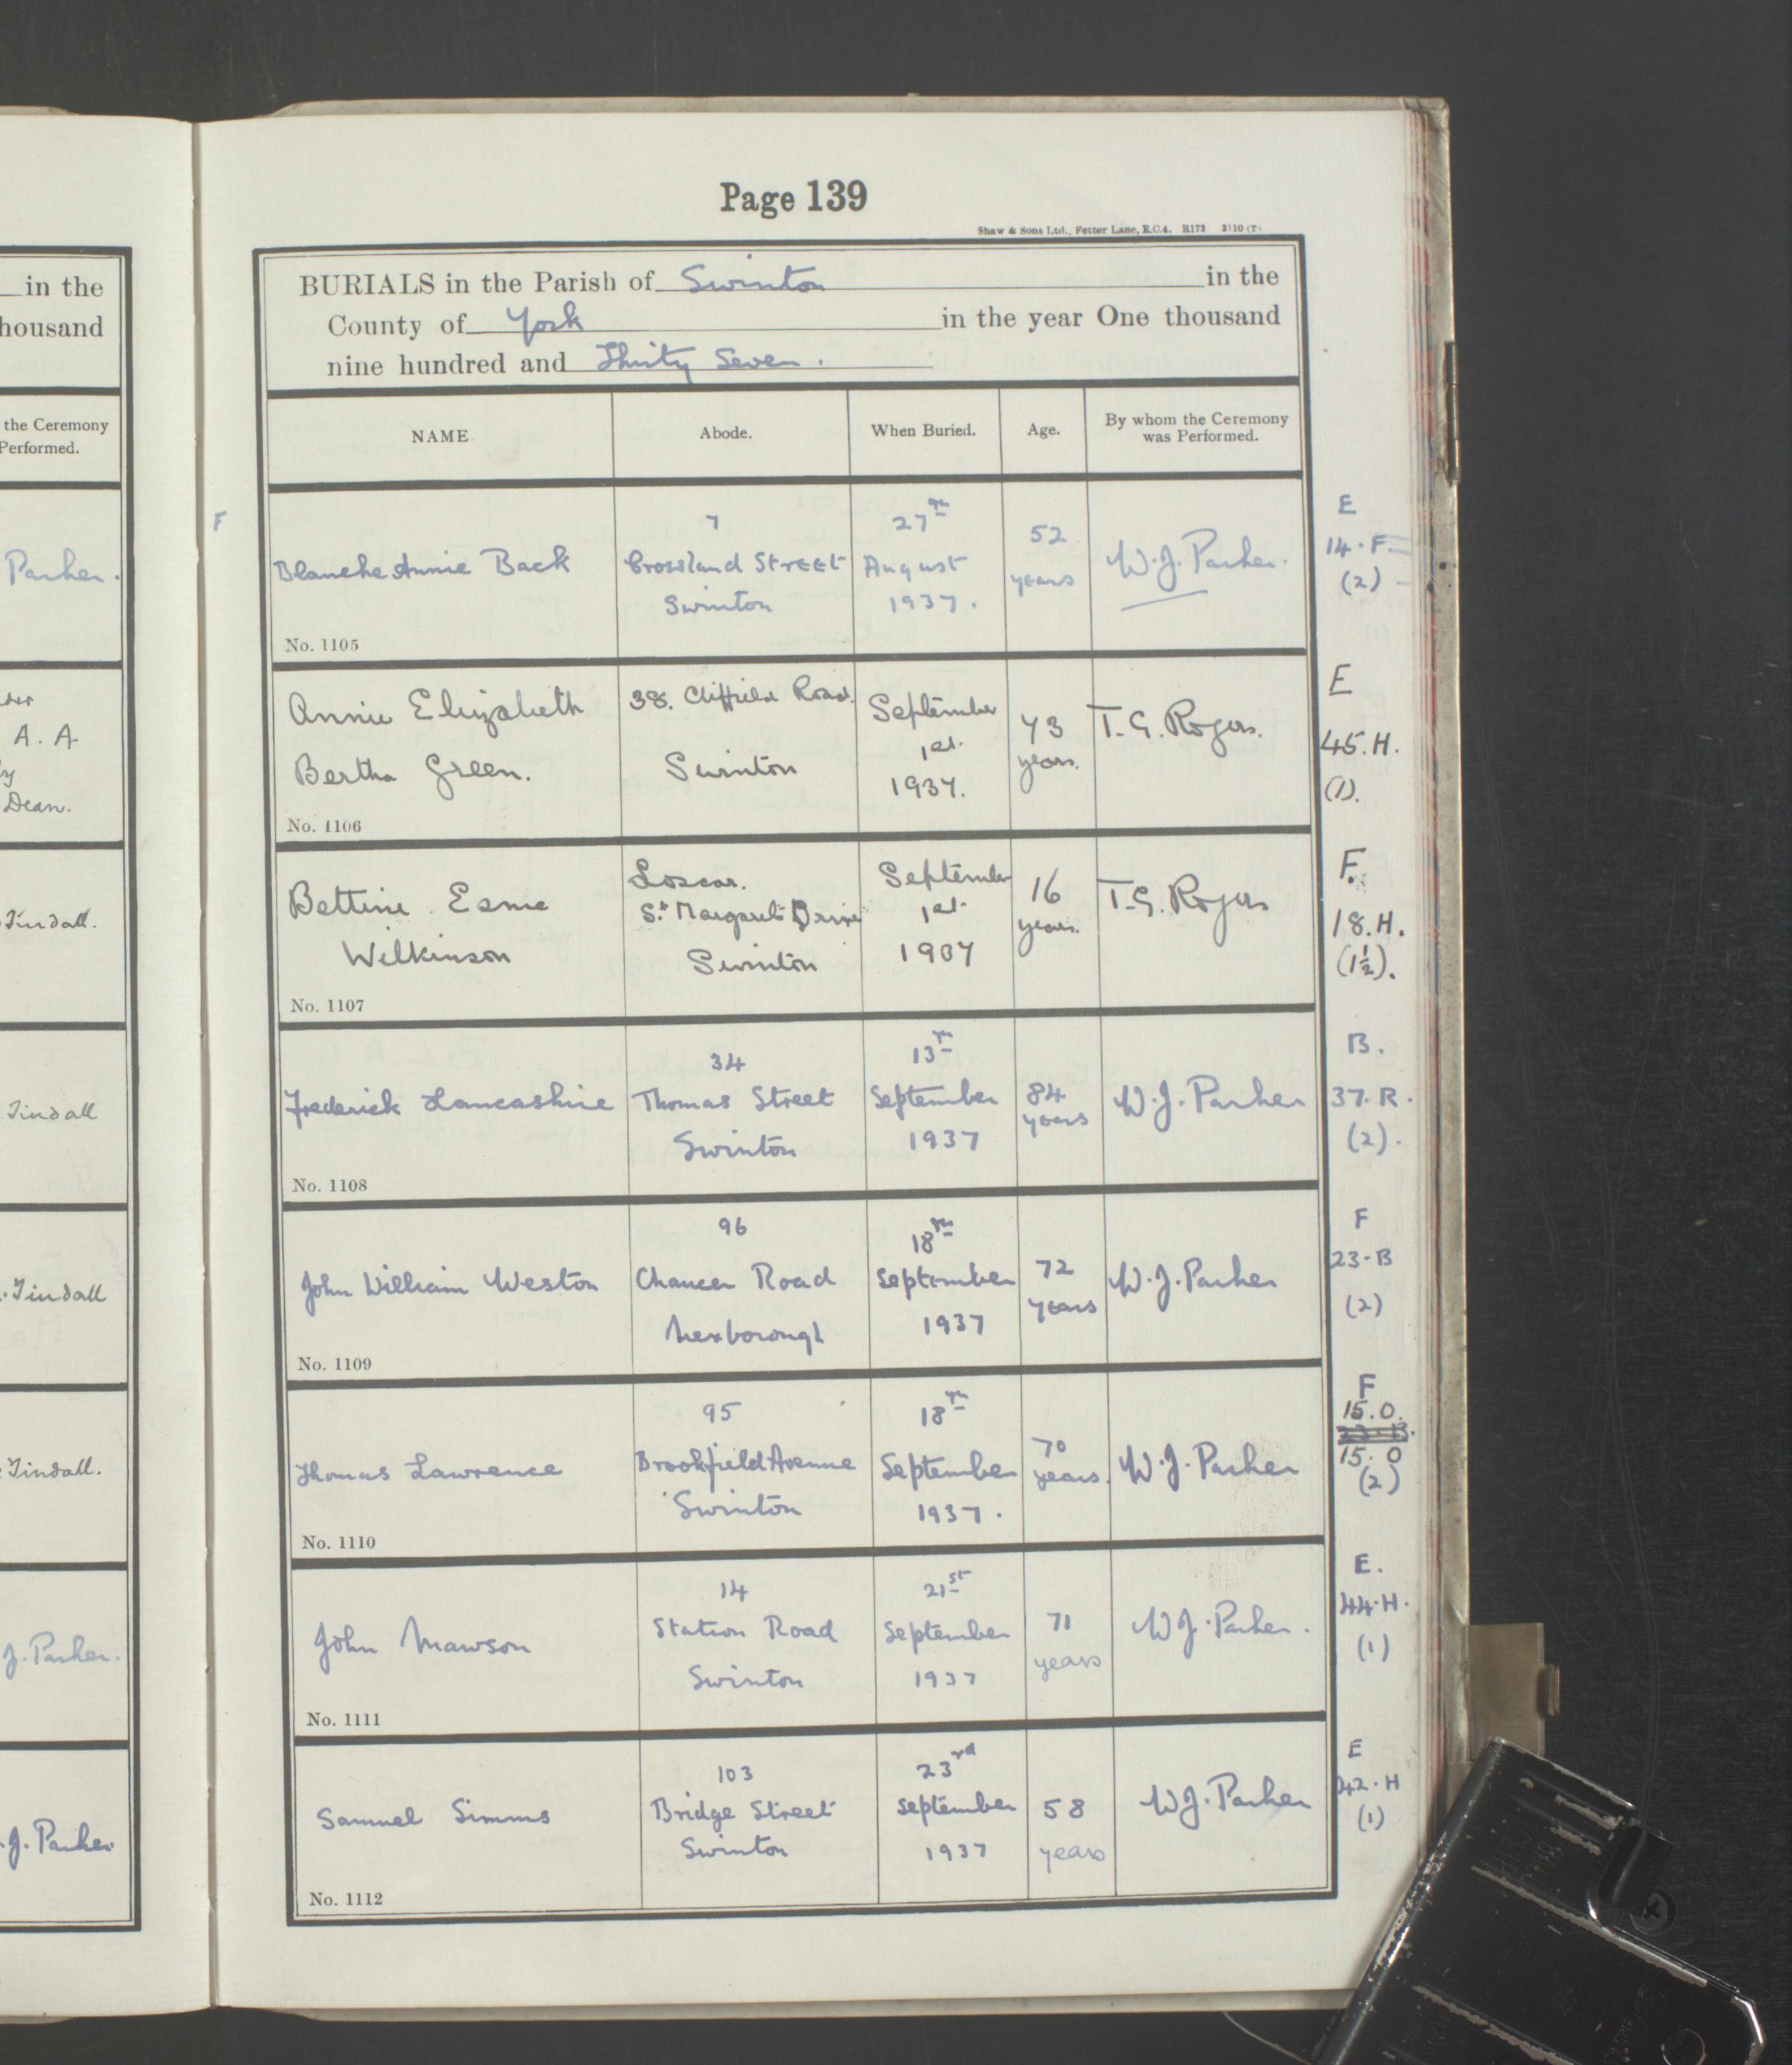 in the
housand
the Ceremony
Performed.
Parker.
A. A
Dean.
Tindall.
Tindall
Tindall
Tindall.
J. Parker.
J. Parker
Page 139
Shaw & Sons Ltd., Fetter Lane, E.C.4. R173 3110 (T)
BURIALS in the Parish of Swinton in the
County of York in the year One thousand
nine hundred and Thirty Seven.
NAME Abode. When Buried. Age. By whom the Ceremony
was Performed.
F
7 27th 52 E
Blanche Annie Back Crossland Street August years W.J. Parker. 14.F.
Swinton 1937. (2)
No. 1105
Annie Elizabeth 38. Cliffield Road. September 73 T.G. Rogers. E
Bertha Green. Swinton 1st. years. 45.H.
1937. (1).
No. 1106
Bettine Esme Loscar. September 16 T.G. Rogers F.
Wilkinson St Margaret's Drive 1st. years. 18.H.
Swinton 1937 (1½).
No. 1107
34 13th B.
Frederick Lancashire Thomas Street September 84 W.J. Parker 37.R.
Swinton 1937 years (2).
No. 1108
96 18th F
John William Weston Chaucer Road September 72 W.J. Parker 23.B
Mexborough 1937 years (2)
No. 1109
95 18th F
15.O.
Thomas Lawrence Brookfield Avenue September 70 W.J. Parker 15.O
Swinton 1937. years. (2)
No. 1110
14 21st E.
John Mawson Station Road September 71 W.J. Parker. 44.H.
Swinton 1937 years (1)
No. 1111
103 23rd E
Samuel Simms Bridge Street September 58 W.J. Parker 42.H
Swinton 1937 years (1)
No. 1112